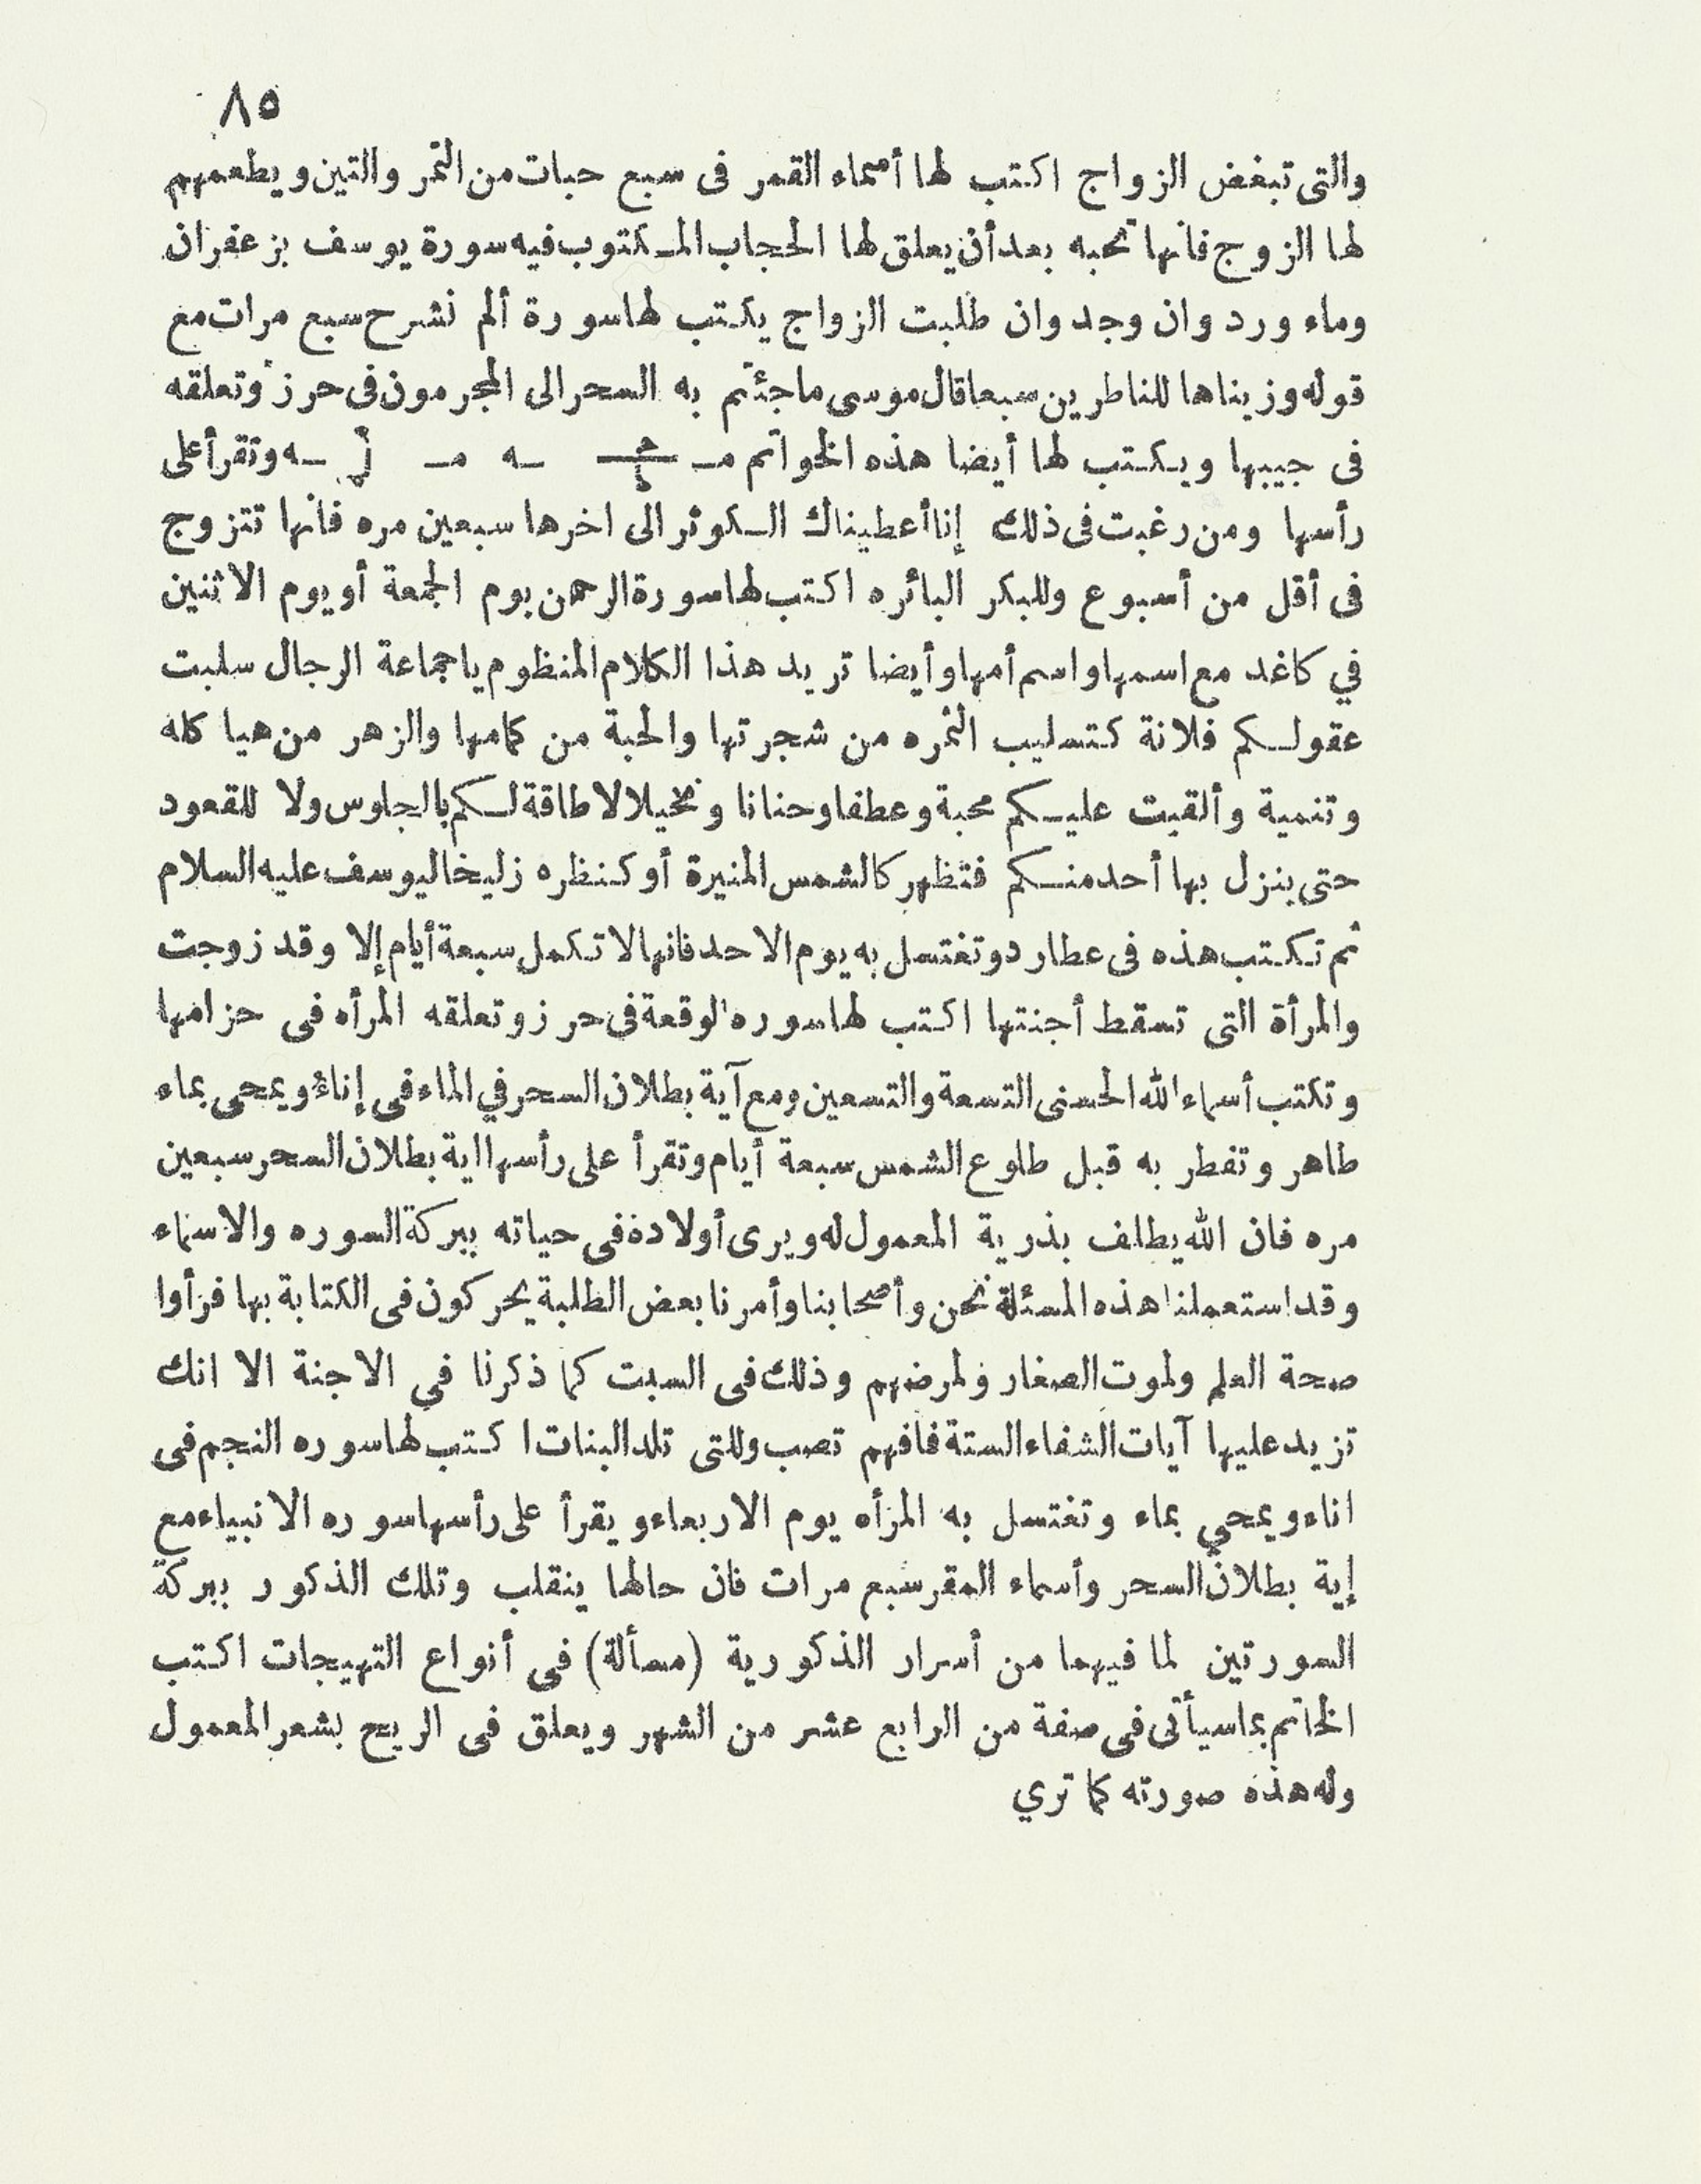 ٨٥
والتى تبغض الزواج اكتب لها أسماء القمر فى سبع حبات من التمر والتين ويطعمهم
لها الزوج فانها تحبه بعد أن يعلق لها الحجاب المـكتوب فيه سورة يوسف بزعفران
وماء ورد وان وجد وان طلبت الزواج يكتب لها سورة ألم نشرح سبع مرات مع
قوله وزيناها للناظرين سبعا قال موسى ماجئتم به السحر الى المجرمون فى حرز وتعلقه
فى جيبها ويـكـتب لها أيضا هذه الخواتم وتقرأ على
رأسها ومن رغبت فى ذلك إنا أعطيناك الـكوثر الى اخرها سبعين مره فانها تتزوج
فى أقل من أسبوع وللبكر البائره اكتب لها سورة الرحمن يوم الجمعة أو يوم الاثنين
في كاغد مع اسمها واسم أمها وأيضا تريد هذا الكلام المنظوم ياجماعة الرجال سلبت
عقولـكم فلانة كتسليب الثمره من شجرتها والحبة من كمامها والزهر من هيا كله
وتنمية وألقيت عليـكم محبة وعطفا وحنانا ونخيلا لا طاقة لـكم بالجلوس ولا للقعود
حتى ينزل بها أحد منـكم فتظهر كالشمس المنيرة أو كنظره زليخا ليوسف عليه السلام
ثم تكـتب هذه فى عطارد وتغتسل به يوم الاحد فانها لا تكمل سبعة أيام إلا وقد زوجت
والمرأة التى تسقط أجنتها اكتب لها سوره الوقعة فى حرز وتعلقه المرأه فى حزامها
وتكتب أسماء الله الحسنى التسعة والتسعين ومع آية بطلان السحر في الماء فى إناء ويمحى بماء
طاهر وتفطر به قبل طلوع الشمس سبعة أيام وتقرأ على رأسها اية بطلان السحر سبعين
مره فان الله يطلف بذرية المعمول له ويرى أولادة فى حياته ببركة السوره والاسماء
وقد استعملنا هذه المسئلة نحن وأصحابنا وأمرنا بعض الطلبة يحركون فى الكتابة بها فرأوا
صحة العلم ولموت الصغار ولمرضهم وذلك فى السبت كما ذكرنا في الاجنة الا انك
تزيد عليها آيات الشفاء الستة فافهم تصب وللتى تلد البنات اكـتب لها سوره النجم فى
اناء ويمحي بماء وتغتسل به المرأه يوم الاربعاء ويقرأ على رأسها سوره الانبياء مع
إية بطلان السحر وأسماء القمر سبع مرات فان حالها ينقلب وتلك الذكور ببركة
السورتين لما فيهما من أسرار الذكورية (مسألة) فى أنواع التهيجات اكتب
الخاتم بماسيأتى فى صفة من الرابع عشر من الشهر ويعلق فى الريح بشعر المعمول
وله هذه صورته كما تري